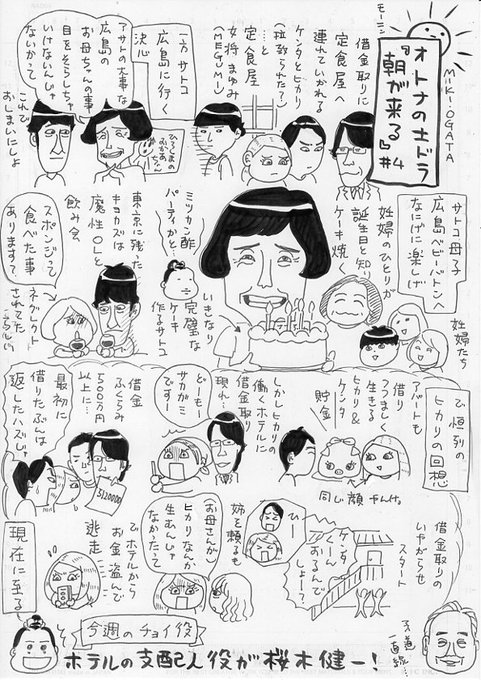 モーニン
MIKI・OGATA
オトナの土ドラ
『朝が来る』#4
借金取りに
定食屋へ
連れていかれる
ケンタとヒカリ
(拉致られた?)
…と
定食屋
女将まゆみ
(MEGUMI)
一方サトコ
広島に行く
決心
ひろしまの
おかあ
ちゃん
アサトの大事な
広島の
お母ちゃんの事
目をそらしちゃ
いけないんじゃ
ないかって
これで
おしまいにしよ
サトコ母子
広島ベビーバトンへ
なにげに楽しげ
妊婦たち
妊婦のひとりが
誕生日と知り
ケーキ焼く
いきなり
完璧な
ケーキ
作るサトコ
ミツカン酢
パーティかと
東京に残った
キヨカズは
魔性OLと
飲み会
スポンジって
食べた事
ありますて
ネグレクト
されてた
で恒例の
ヒカリの回想
アパートも
借り
つつましく
生きる
ヒカリ&
ケンタ
貯金
同じ顔やんけ。
しかしヒカリの
働くホテルに
借金取り
現れ…
どーもー
サカガミ
です
借金
ふくらみ
500万円
以上に…
5120000
最初に
借りたぶんは
返したハズじゃ
借金取りの
いやがらせ
スタート
ケンタ
くーん
おるんで
しょー?
ひー
姉を頼るも
お母さんが
ヒカリなんか
生まんじゃ
なかったって
でホテルから
お金盗んで
逃走
現在に至る
今週のチョイ役
ホテルの支配人役が桜木健一!
柔道
一直線…